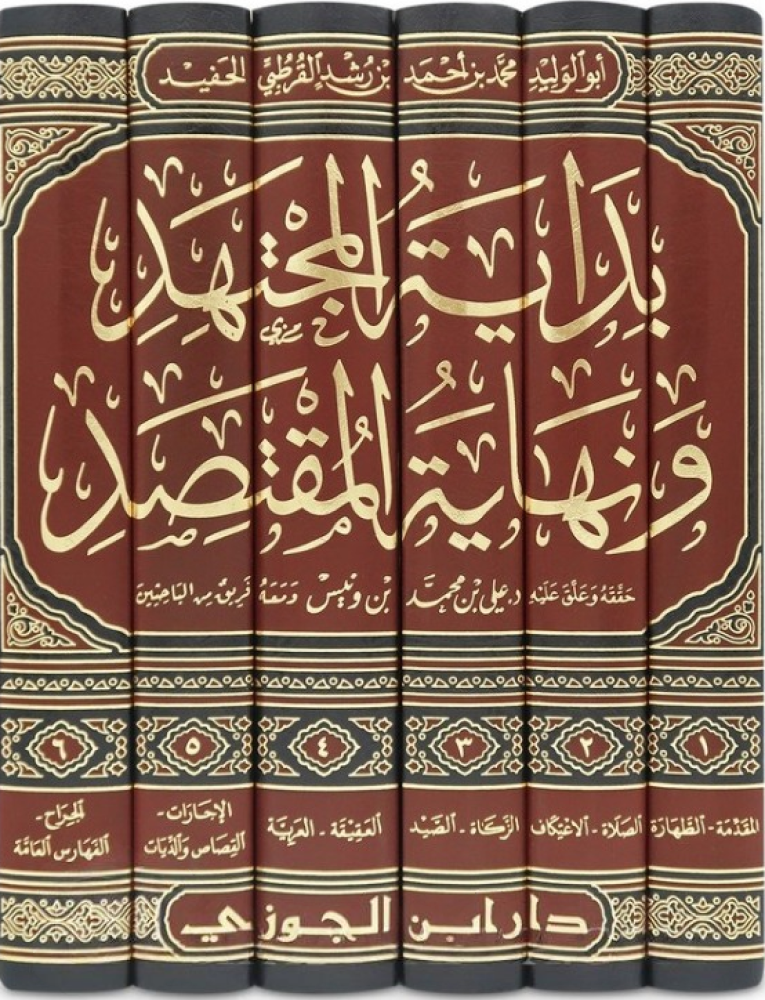 أبو الوليد محمد بن أحمد بن رشد القرطبي الحفيد
بداية المجتهد
ونهاية المقتصد
حققه وعلق عليه د. علي بن محمد بن ونيس ومعه فريق من الباحثين
١ ٢ ٣ ٤ ٥ ٦
المقدمة - الطهارة
الصلاة - الاعتكاف
الزكاة - الصيد
العقيقة - العرية
الإجارات -
القصاص والديات
الجراح -
الفهارس العامة
دار ابن الجوزي